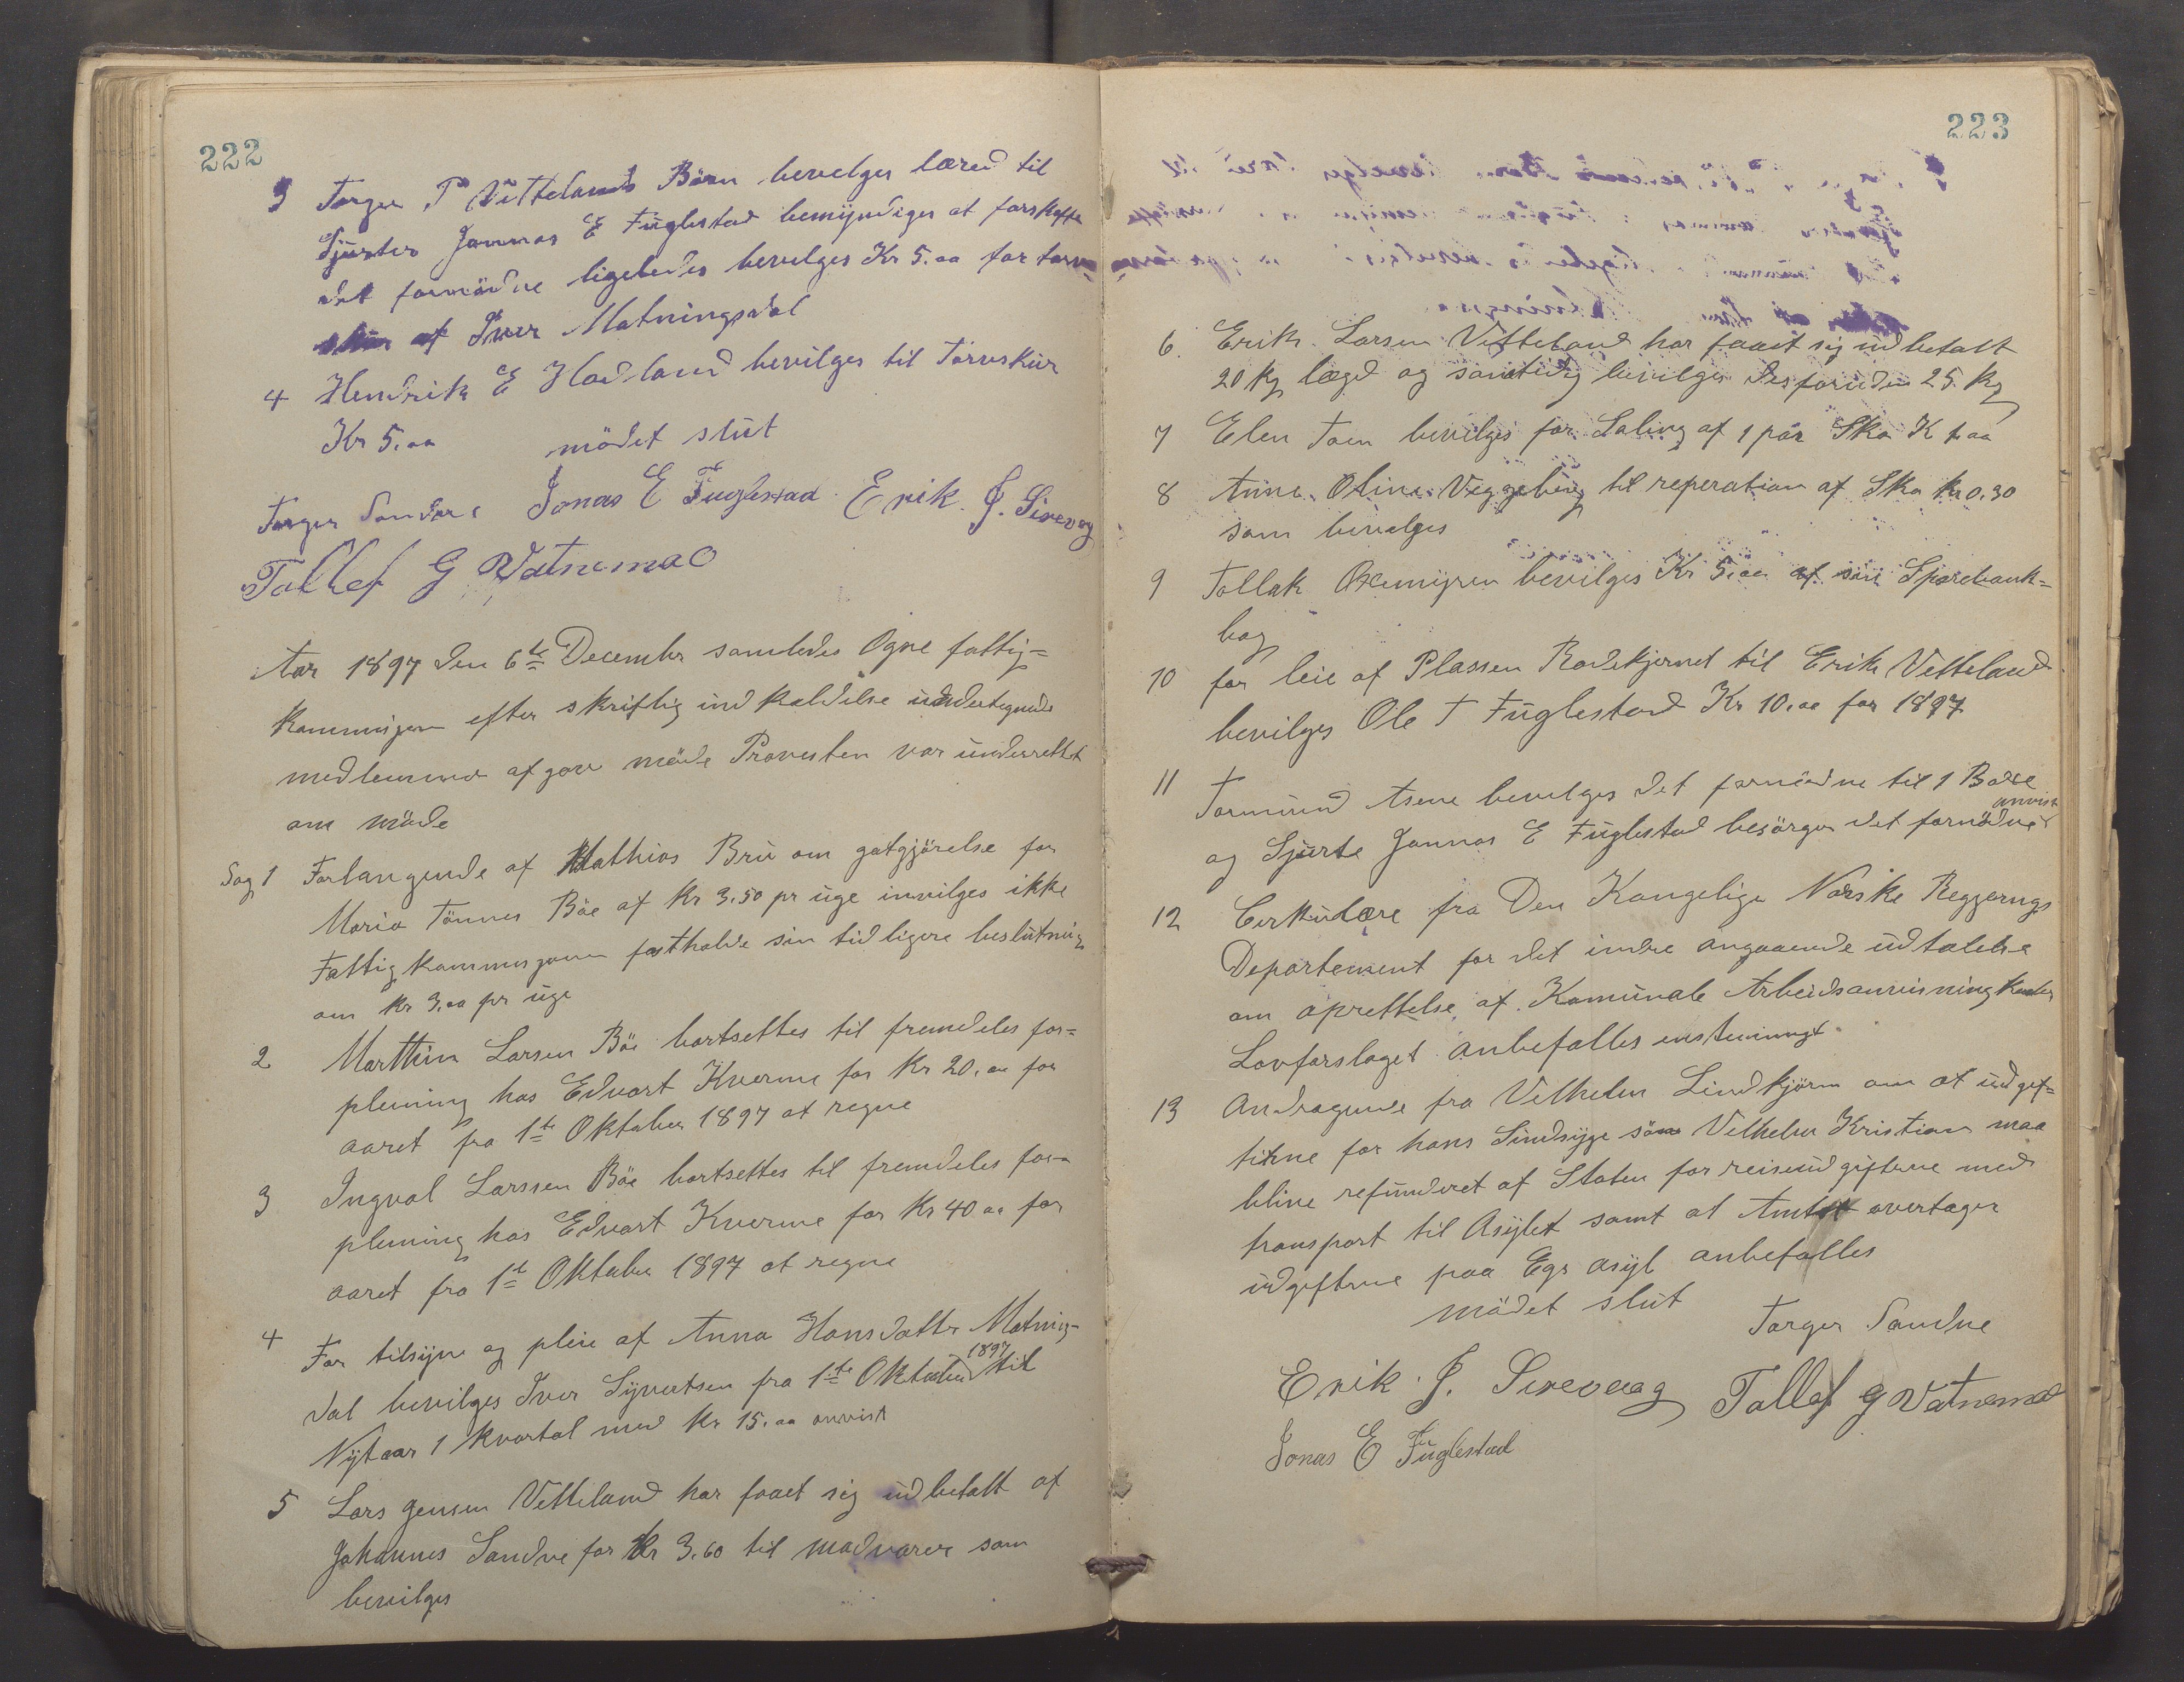 222
3 Torger T Vettelands Börn bevelges læred til
Sjurter Jonnas E Fuglestad bemyndiges at forskaffe
det fornödne ligeledes bevelges Kr 5.00 for torv
skur af Iver Matningsdal
4 Hendrik E Hadland bevilges til Torvskur
Kr 5.00 mödet slut
Torger Sandve Jonas E Fuglestad Erik J. Sirevag
Tallef G Vatnemao
Aar 1897 den 6te Decembr samledes Ogne fattig=
kommisjon efter skriftlig indkaldelse undertegnede
medlemmer afgav möde Provsten var underrettet
om möde
Sag 1 Forlangende af Mathias Bru om gotgjörelse for
Maria Tönnes Böe af Kr 3.50 pr uge invilges ikke
Fattigkommisjonen fastholde sin tidligere beslutning
om Kr 3.00 pr uge
2 Marthin Larsen Böe bortsettes til fremdeles for=
pleining hos Edvart Kverme for Kr 20.00 for
aaret fra 1te Oktober 1897 at regne
3 Ingval Larssen Böe bortsettes til fremdeles for=
pleining hos Edvart Kverme for Kr 40.00 for
aaret fra 1te Oktober 1897 at regne
4 For tilsyn og pleie af Anna Hansdatter Matnings-
dal bevilges Iver Syvertsen fra 1te Oktober 1897 til
Nytaar 1 kvartal med Kr 15.00 anvist
5 Lars Jensen Vetteland har faaet sig udbetalt af
Johannes Sandve for Kr 3.60 til madvarer som
bevilges
223
6. Erik Larsen Vetteland har faaet sig udbetalt
20 Kg lægd og samtidig bevilges desforuden 25 Kg
7 Elen Toen bevilges for Saling af 1 par Sko K 1.00
8 Anne Oline Veggeberg til reperation af Sko Kr 0.30
som bevelges
9 Tollak Oxemyren bevilges Kr 5.00 af sin Sparebank=
bog
10 for leie af Plassen Rodekjernet til Erik Vetteland
bevilges Ole T Fuglestad Kr 10.00 for 1897
11 Tormund Asene bevelges det fornödne til 1 Bokse
og Sjurte Jonnas E Fuglestad besörger det fornödne anvist
12 Cerkulære fra Den Kongelige Norske Regjerings
Departement for det indre angaaende udtalelse
om oprettelse af Komunale Arbeidsanvisningkontor
Lovforslaget anbefalles enstemmigt
13 Andragende fra Velhelm Lindkjörn om at udgif=
terne for hans Sindsyge sön Velhelm Kristian maa
blive refunderet af Staten for reiseudgifterne med
transport til Asylet samt at Amtet overtager
udgifterne paa Egs asyl anbefalles
mödet slut Torger Sandve
Erik J. Sirevaag Tallef G Vatnemao
Jonas E Fuglestad